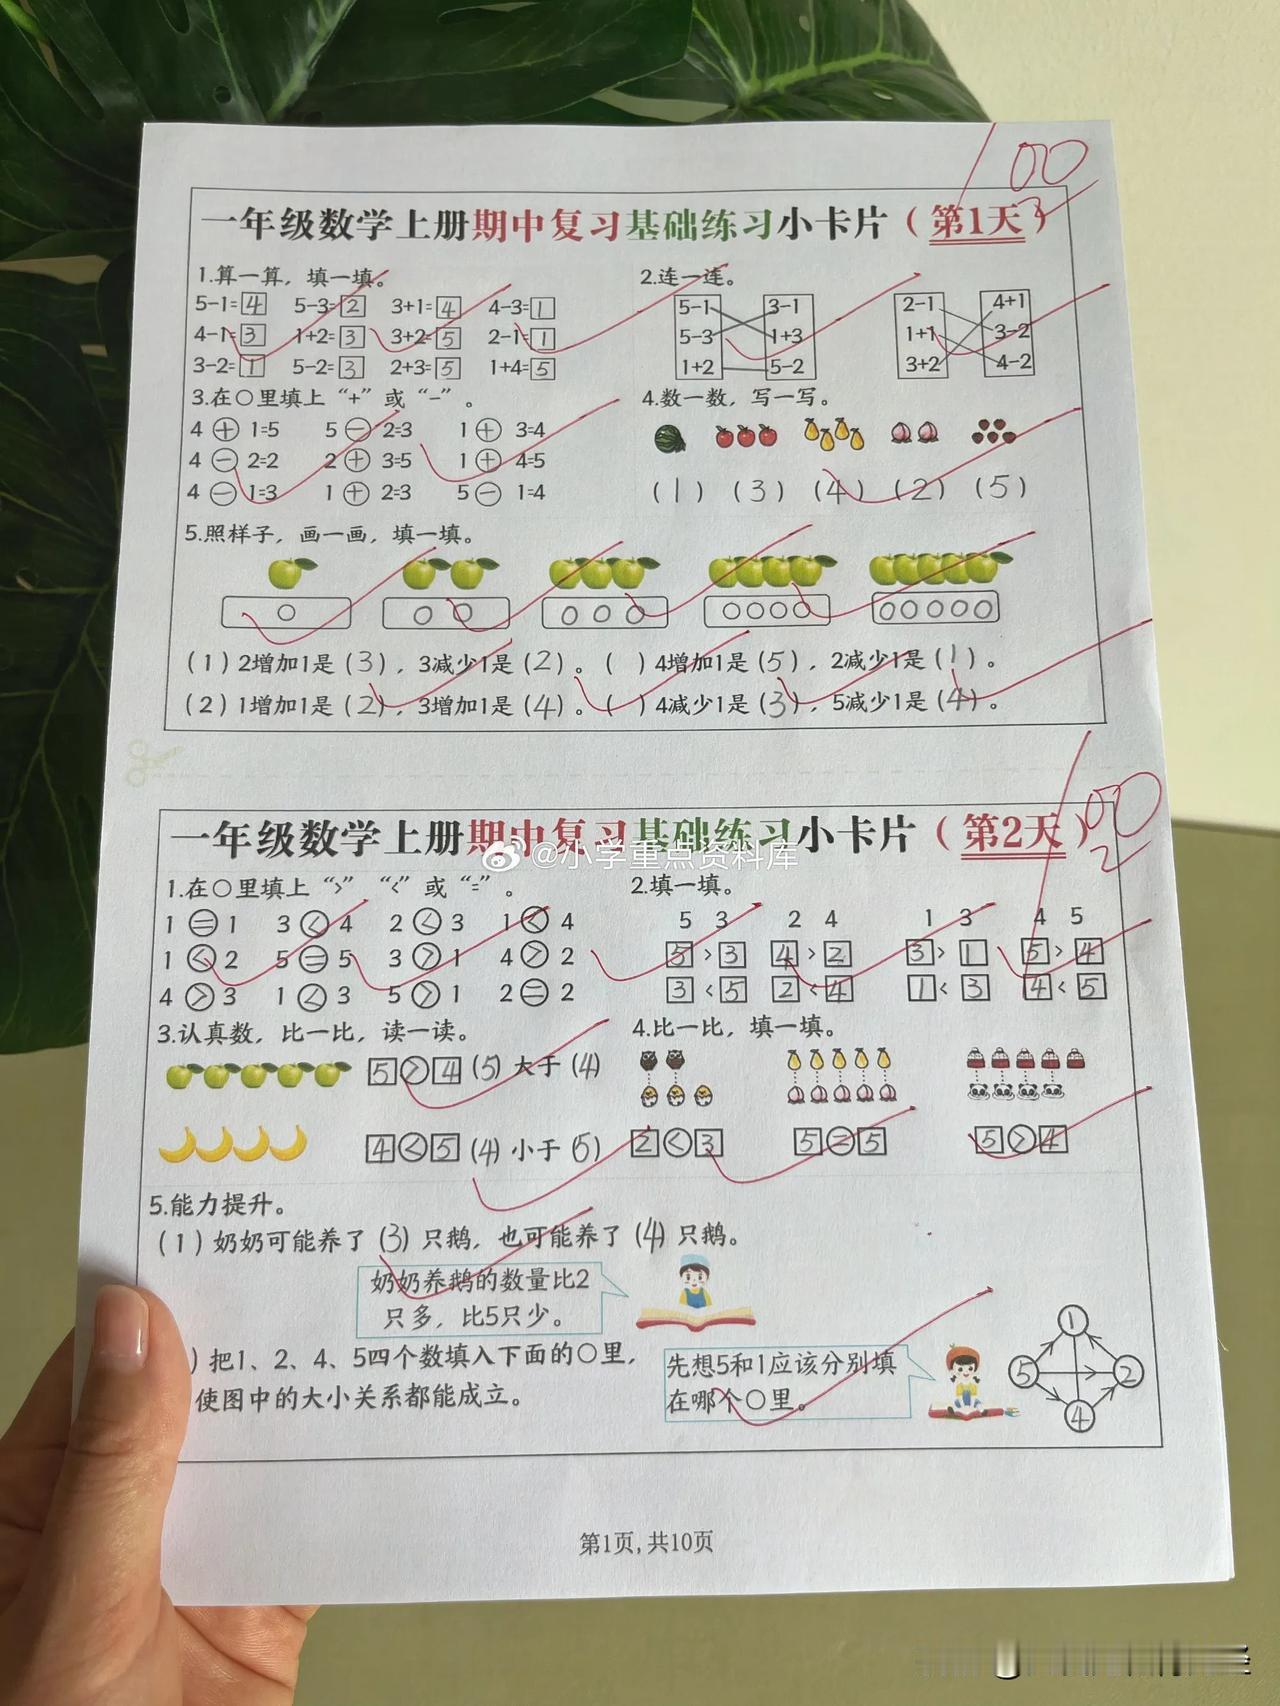 100
一年级数学上册期中复习基础练习小卡片（第1天）
1.算一算，填一填。
5-1=4 5-3=2 3+1=4 4-3=1
4-1=3 1+2=3 3+2=5 2-1=1
3-2=1 5-2=3 2+3=5 1+4=5
2.连一连。
5-1 3-1 2-1 4+1
5-3 1+3 1+1 3-2
1+2 5-2 3+2 4-2
3.在○里填上“+”或“-”。
4+1=5 5-2=3 1+3=4
4-2=2 2+3=5 1+4=5
4-1=3 1+2=3 5-1=4
4.数一数，写一写。
(1) (3) (4) (2) (5)
5.照样子，画一画，填一填。
○ ○○ ○○○ ○○○○ ○○○○○
(1) 2增加1是(3)，3减少1是(2)。( ) 4增加1是(5)，2减少1是(1)。
(2) 1增加1是(2)，3增加1是(4)。( ) 4减少1是(3)，5减少1是(4)。
100
一年级数学上册期中复习基础练习小卡片（第2天）
@小学重点资料库
1.在○里填上“>”“<”或“=”。
1=1 3<4 2<3 1<4
1<2 5=5 3>1 4>2
4>3 1<3 5>1 2=2
2.填一填。
5 3 2 4 1 3 4 5
5>3 4>2 3>1 5>4
3<5 2<4 1<3 4<5
3.认真数，比一比，读一读。
5>4 (5)大于(4)
4<5 (4)小于(5)
4.比一比，填一填。
2<3 5=5 5>4
5.能力提升。
(1) 奶奶可能养了(3)只鹅，也可能养了(4)只鹅。
奶奶养鹅的数量比2
只多，比5只少。
)把1、2、4、5四个数填入下面的○里，
使图中的大小关系都能成立。
先想5和1应该分别填
在哪个○里。
1
5 2
4
第1页,共10页